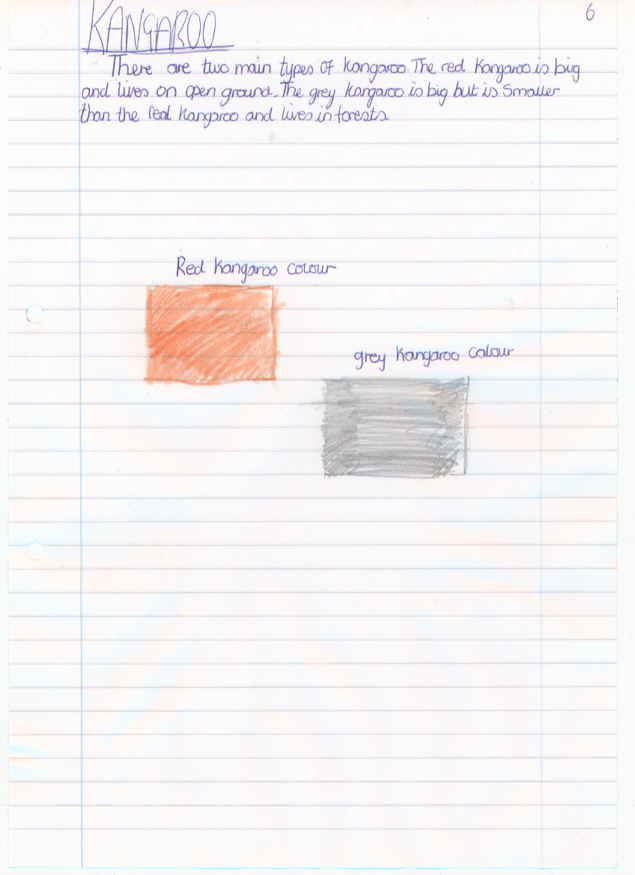 6
KANGAROO
There are two main types of kangaroo. The red kangaroo is big
and lives on open ground. The grey kangaroo is big but is smaller
than the red kangaroo and lives in forests.
Red kangaroo colour
grey kangaroo colour